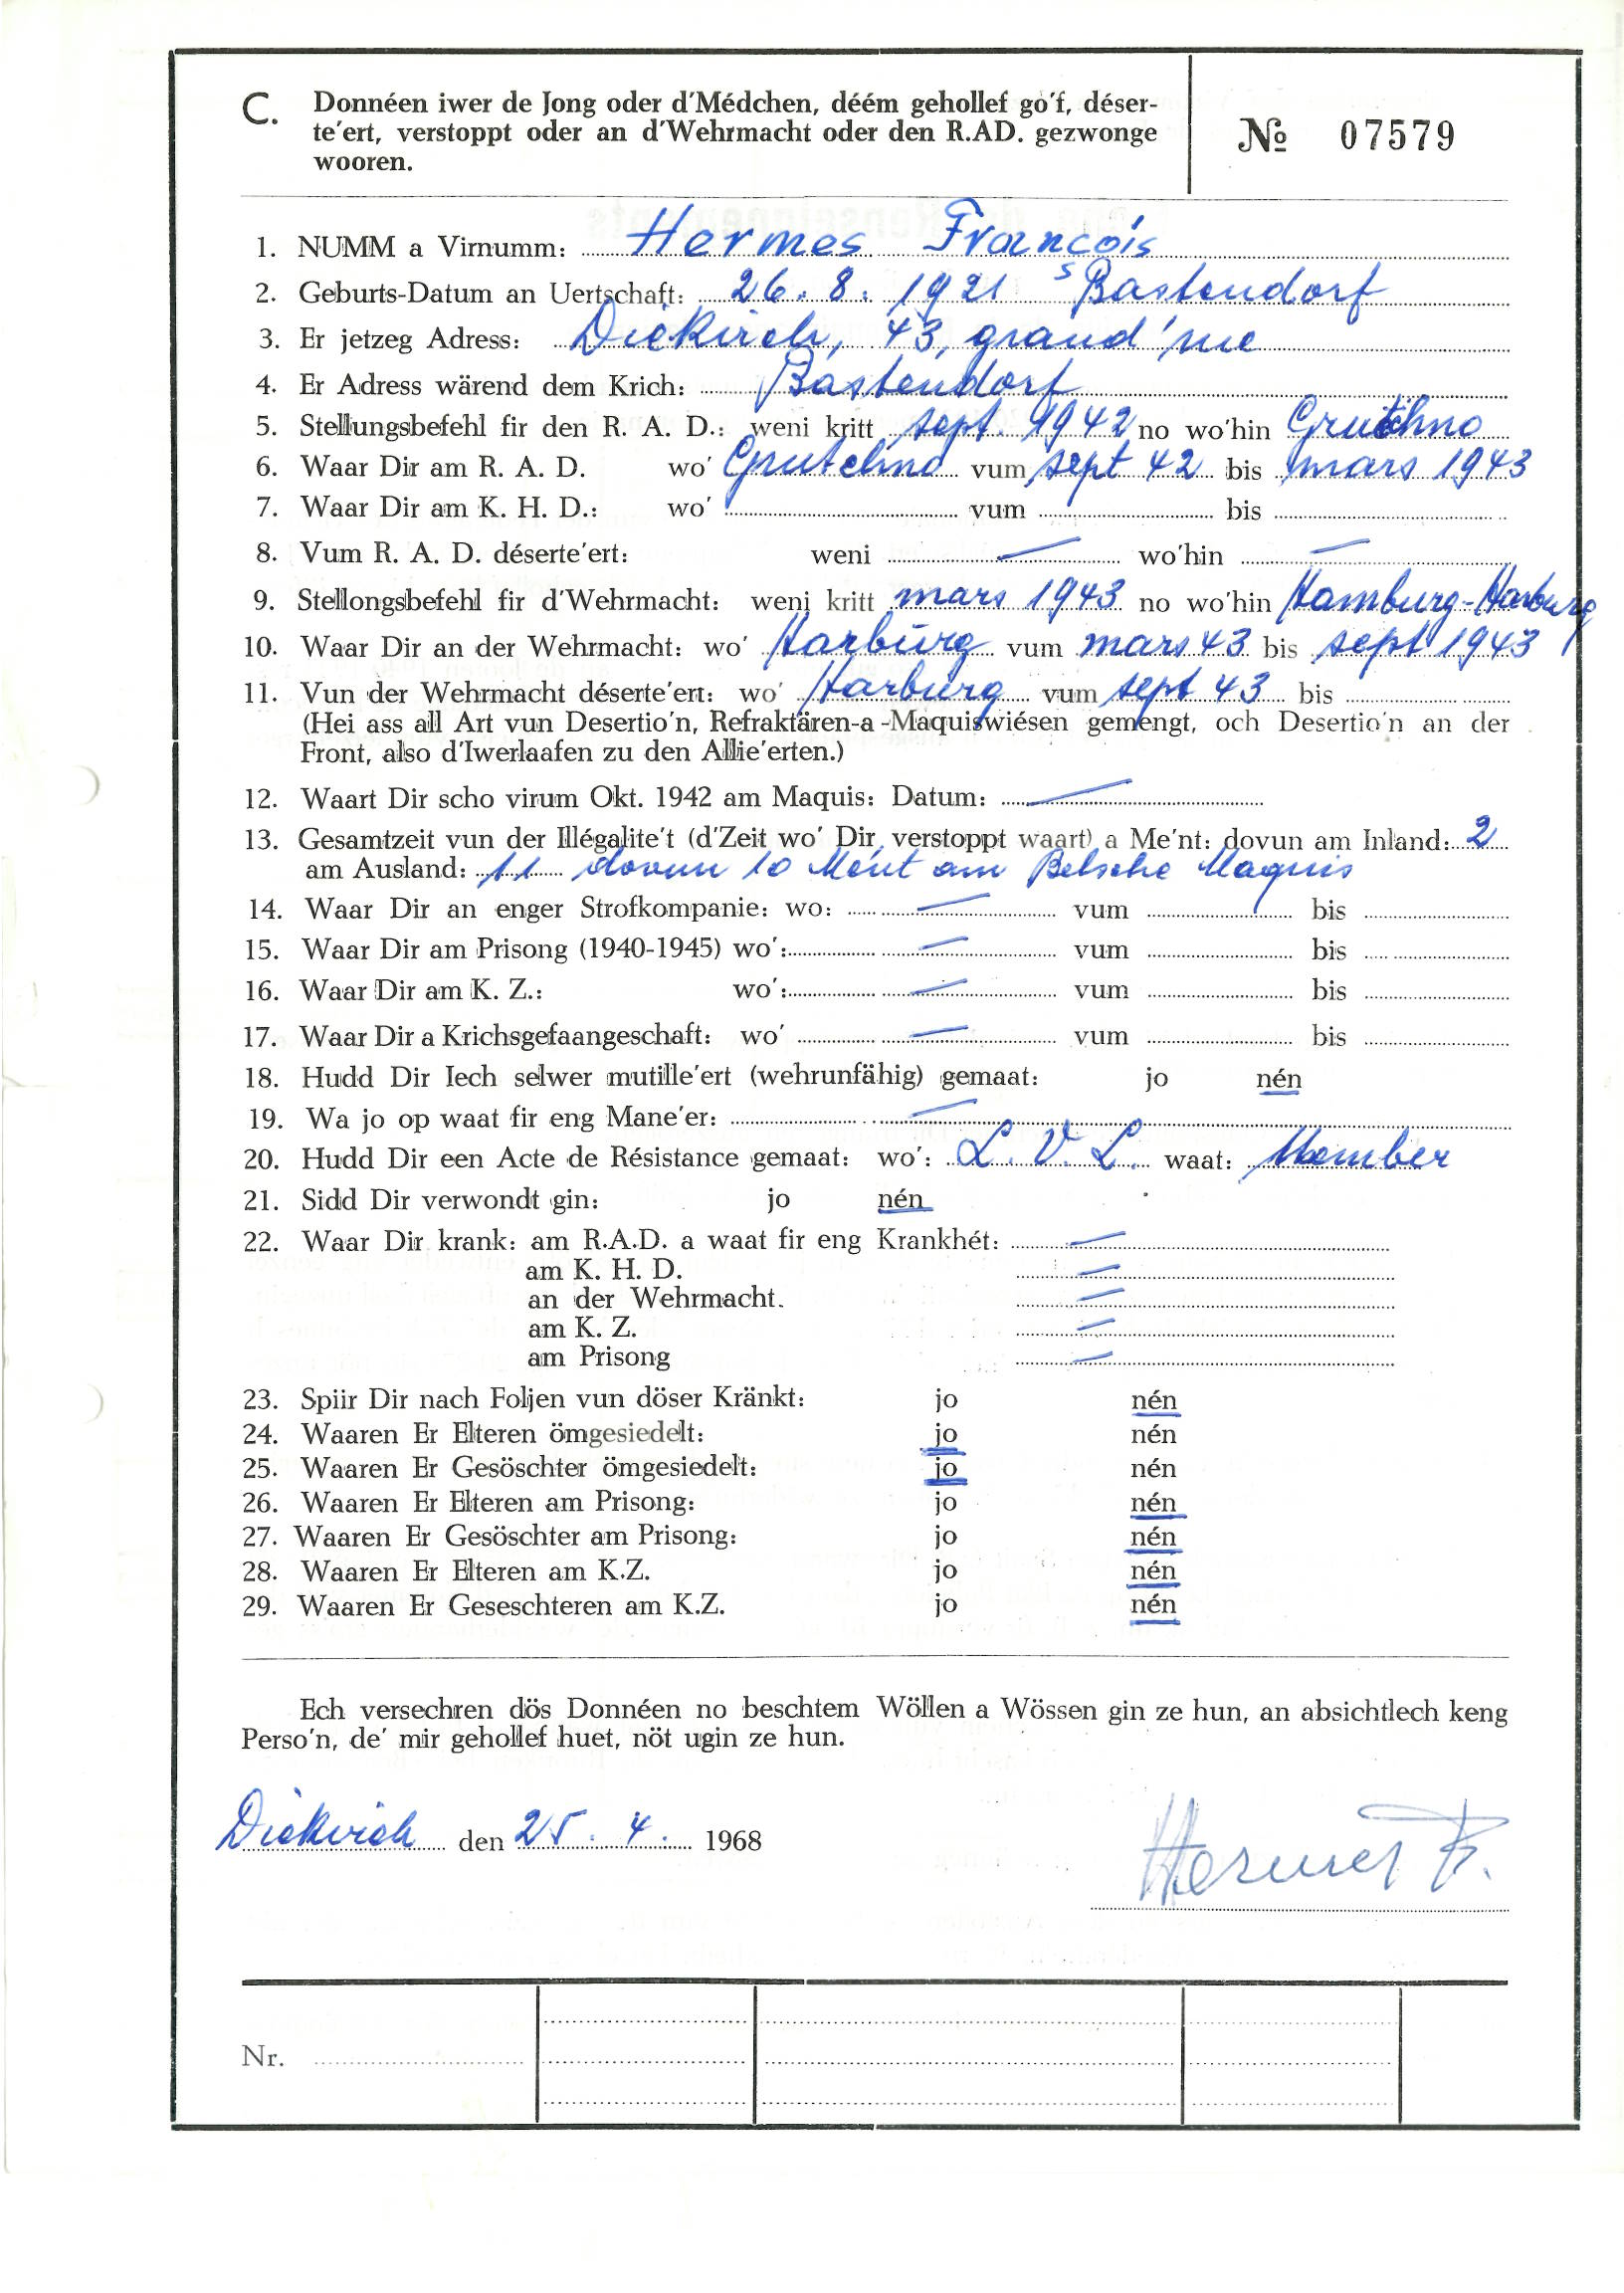 C. Donnéen iwer de Jong oder d'Médchen, déém gehollef go'f, déser-
te'ert, verstoppt oder an d'Wehrmacht oder den R.AD. gezwonge
wooren.
№ 07579
1. NUMM a Virnumm: Hermes François
2. Geburts-Datum an Uertschaft: 26. 8. 1921 Bastendorf
3. Er jetzeg Adress: Diekirch, 43, grand'rue
4. Er Adress wärend dem Krich: Bastendorf
5. Stellungsbefehl fir den R. A. D.: weni kritt sept. 1942 no wo'hin Grutchno
6. Waar Dir am R. A. D. wo' Grutchno vum sept 42 bis mars 1943
7. Waar Dir am K. H. D.: wo' vum bis
8. Vum R. A. D. déserte'ert: weni — wo'hin —
9. Stellongsbefehl fir d'Wehrmacht: weni kritt mars 1943 no wo'hin Hamburg-Harburg
10. Waar Dir an der Wehrmacht: wo' Harburg vum mars 43 bis sept 1943
11. Vun der Wehrmacht déserte'ert: wo' Harburg vum sept 43 bis
(Hei ass all Art vun Desertio'n, Refraktären-a-Maquiswiésen gemengt, och Desertio'n an der
Front, also d'Iwerlaafen zu den Allie'erten.)
12. Waart Dir scho virum Okt. 1942 am Maquis: Datum: —
13. Gesamtzeit vun der Illégalite't (d'Zeit wo' Dir verstoppt waart) a Me'nt: dovun am Inland: 2
am Ausland: 11 dovun 10 Me'nt am Belsche Maquis
14. Waar Dir an enger Strofkompanie: wo: — vum bis
15. Waar Dir am Prisong (1940-1945) wo': — vum bis
16. Waar Dir am K. Z.: wo': — vum bis
17. Waar Dir a Krichsgefaangeschaft: wo' — vum bis
18. Hudd Dir Iech selwer mutille'ert (wehrunfähig) gemaat: jo nén
19. Wa jo op waat fir eng Mane'er: —
20. Hudd Dir een Acte de Résistance gemaat: wo': L. V. L. waat: Member
21. Sidd Dir verwondt gin: jo nén
22. Waar Dir krank: am R.A.D. a waat fir eng Krankhét: —
am K. H. D. —
an der Wehrmacht. —
am K. Z. —
am Prisong —
23. Spiir Dir nach Foljen vun döser Kränkt: jo nén
24. Waaren Er Elteren ömgesiedelt: jo nén
25. Waaren Er Gesöschter ömgesiedelt: jo nén
26. Waaren Er Elteren am Prisong: jo nén
27. Waaren Er Gesöschter am Prisong: jo nén
28. Waaren Er Elteren am K.Z. jo nén
29. Waaren Er Geseschteren am K.Z. jo nén
Ech versechren dös Donnéen no beschtem Wöllen a Wössen gin ze hun, an absichtlech keng
Perso'n, de' mir gehollef huet, nöt ugin ze hun.
Diekirch den 25. 4. 1968
Hermes F.
Nr.